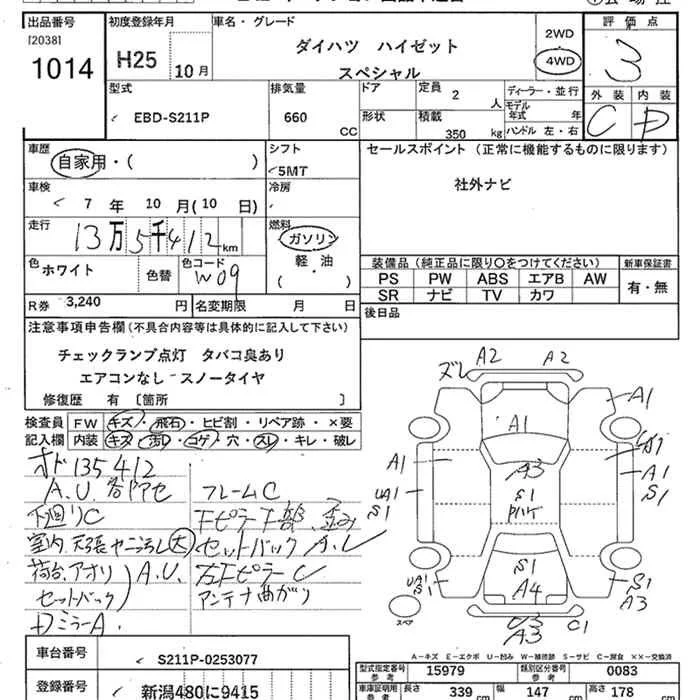 出品番号
[2038]
1014
初度登録年月
H25 10月
車名・グレード
ダイハツ ハイゼット
スペシャル
2WD
4WD
評価点
3
外装 内装
C D
型式
EBD-S211P
排気量
660 CC
ドア
形状
定員 2 人
積載 350 kg
ディーラー・並行
モデル年式 年
ハンドル 左・右
車歴
自家用・( )
シフト
5MT
セールスポイント (正常に機能するものに限ります)
社外ナビ
車検
7 年 10 月(10 日)
冷房
走行
13万5千412km
燃料
ガソリン
軽・油
( ・ )
色 ホワイト
色替
色コード
W09
装備品 (純正品に限り〇をつけてください)
PS PW ABS エアB AW
SR ナビ TV カワ
新車保証書
有・無
R券 3,240 円
名変期限 月 日
後日品
注意事項申告欄(不具合内容等は具体的に記入して下さい)
チェックランプ点灯 タバコ臭あり
エアコンなし スノータイヤ
修復歴 有 〔箇所 〕
検査員記入欄
FW キズ・飛石・ヒビ割・リペア跡・×要
内装 キズ・汚レ・コゲ・穴・スレ・キレ・破レ
オド135412
A.U.各ドアセ
下回りC
室内、天張ヤニ汚レ大
荷台、アオリ A.U.
セットバック
Dミラー A.
フレームC
Fピラー下部、歪み
セットバック A.U
左Fピラー C
アンテナ曲ガリ
ズレ A2 A2
A1
A1
A1
A3
A1
A1
S1
S1
UA1
S1
S1
A4
UA1
S1
S1
A3
U3
A3
C1
スペア
A－キズ E－エクボ U－凹み W－補修跡 S－サビ C－腐食 ××－交換済
車台番号
S211P-0253077
登録番号
新潟480に9415
型式指定番号 参考
15979
類別区分番号 参考
0083
車庫証明用 参考
長さ 339 cm
幅 147 cm
高さ 178 cm